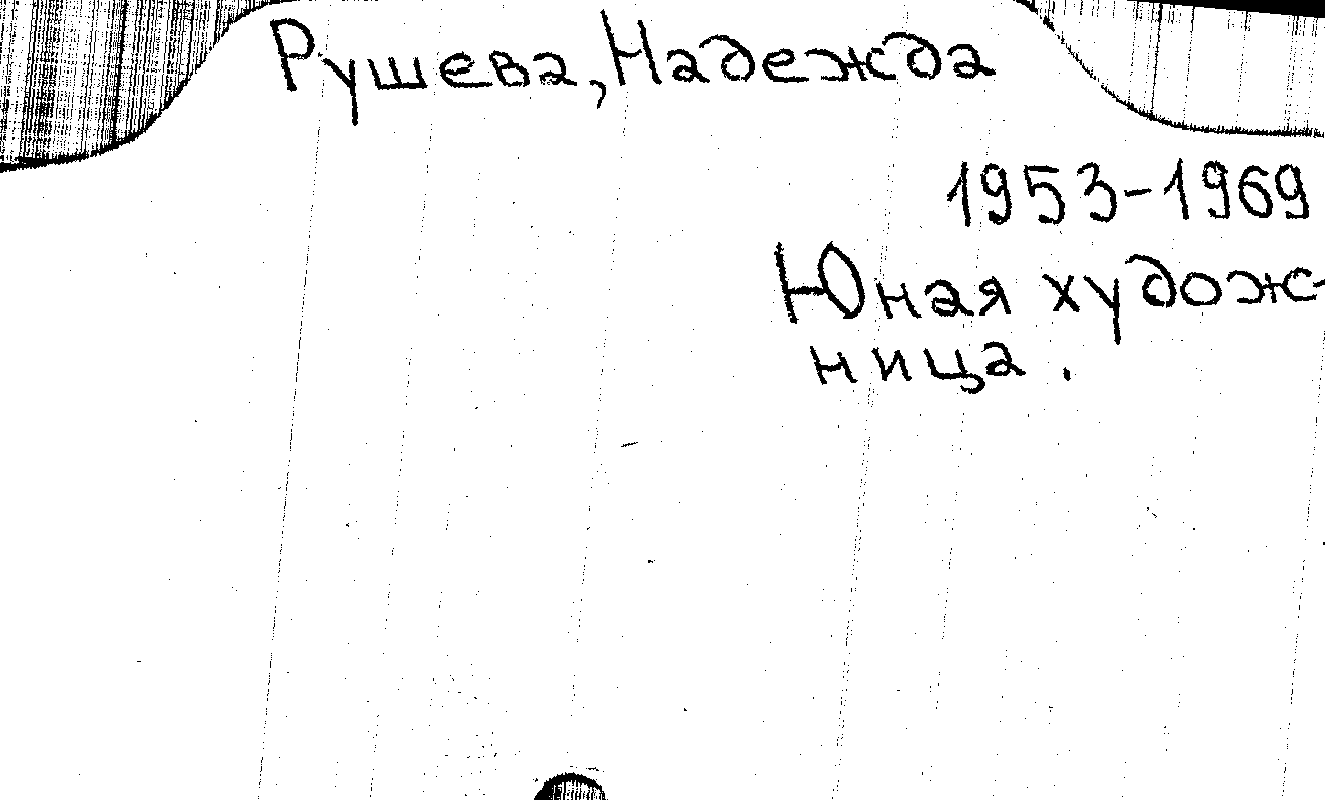 Рушева, Надежда
1953-1969
Юная худож-
ница.